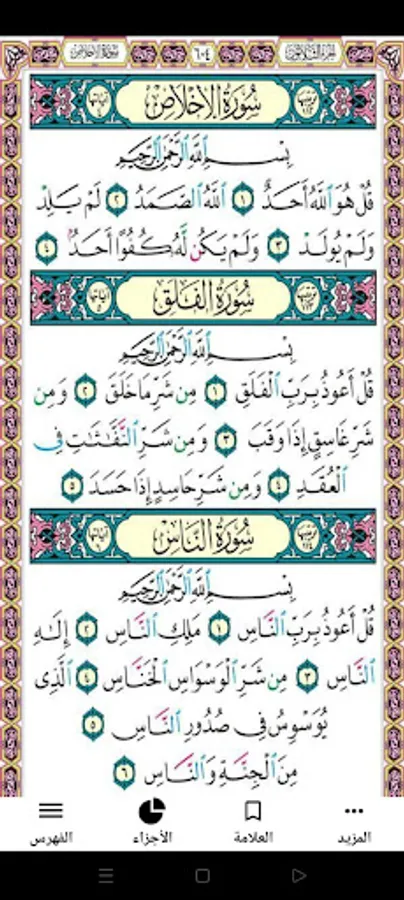 سورة الإخلاص ٦٠٤ الجزء الثلاثون
سُورَةُ الإِخْلَاصِ
بِسْمِ ٱللَّهِ ٱلرَّحْمَٰنِ ٱلرَّحِيمِ
قُلْ هُوَ ٱللَّهُ أَحَدٌ ١ ٱللَّهُ ٱلصَّمَدُ ٢ لَمْ يَلِدْ
وَلَمْ يُولَدْ ٣ وَلَمْ يَكُن لَّهُۥ كُفُوًا أَحَدٌۢ ٤
سُورَةُ الفَلَقِ
بِسْمِ ٱللَّهِ ٱلرَّحْمَٰنِ ٱلرَّحِيمِ
قُلْ أَعُوذُ بِرَبِّ ٱلْفَلَقِ ١ مِن شَرِّ مَا خَلَقَ ٢ وَمِن
شَرِّ غَاسِقٍ إِذَا وَقَبَ ٣ وَمِن شَرِّ ٱلنَّفَّٰثَٰتِ فِى
ٱلْعُقَدِ ٤ وَمِن شَرِّ حَاسِدٍ إِذَا حَسَدَ ٥
سُورَةُ النَّاسِ
بِسْمِ ٱللَّهِ ٱلرَّحْمَٰنِ ٱلرَّحِيمِ
قُلْ أَعُوذُ بِرَبِّ ٱلنَّاسِ ١ مَلِكِ ٱلنَّاسِ ٢ إِلَٰهِ
ٱلنَّاسِ ٣ مِن شَرِّ ٱلْوَسْوَاسِ ٱلْخَنَّاسِ ٤ ٱلَّذِى
يُوَسْوِسُ فِى صُدُورِ ٱلنَّاسِ ٥
مِنَ ٱلْجِنَّةِ وَٱلنَّاسِ ٦
المزيد العلامة الأجزاء الفهرس